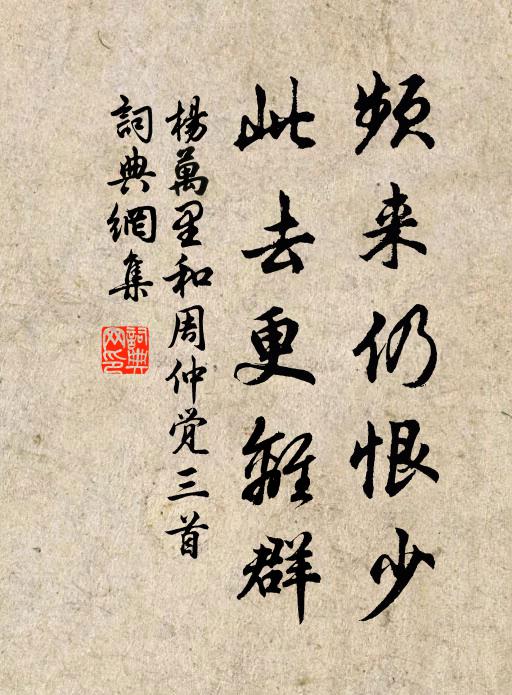 频来仍恨少
此去更離群
楊萬里和周仲觉三首
詞典網集
詞典網印